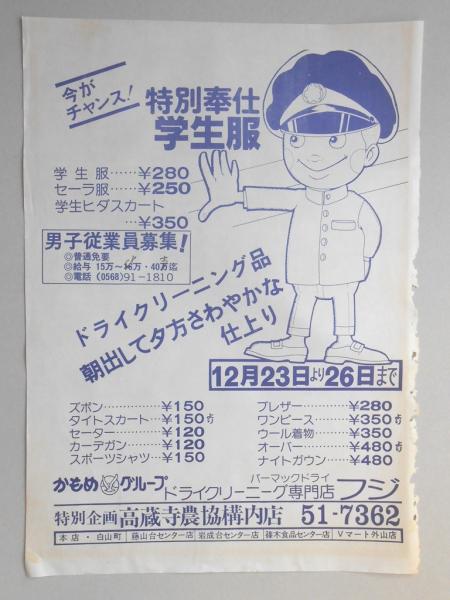 今が
チャンス!
特別奉仕
学生服
学生服……¥280
セーラ服……¥250
学生ヒダスカート
…¥350
男子従業員募集!
◎普通免要
◎給与 15万〜万・40才迄
◎電話(0568)91-1810
ドライクリーニング品
朝出して夕方さわやかな
仕上り
12月23日より26日まで
ズボン……………¥150
タイトスカート…¥150より
セーター…………¥120
カーデガン………¥120
スポーツシャツ…¥150
ブレザー…………¥280
ワンピース………¥350より
ウール着物………¥350
オーバー…………¥480より
ナイトガウン……¥480
かもめグループ
パーマックドライ
ドライクリーニング専門店 フジ
特別企画 高蔵寺農協構内店 51-7362
本店・白山町 藤山台センター店 岩成台センター店 篠木食品センター店 Vマート外山店